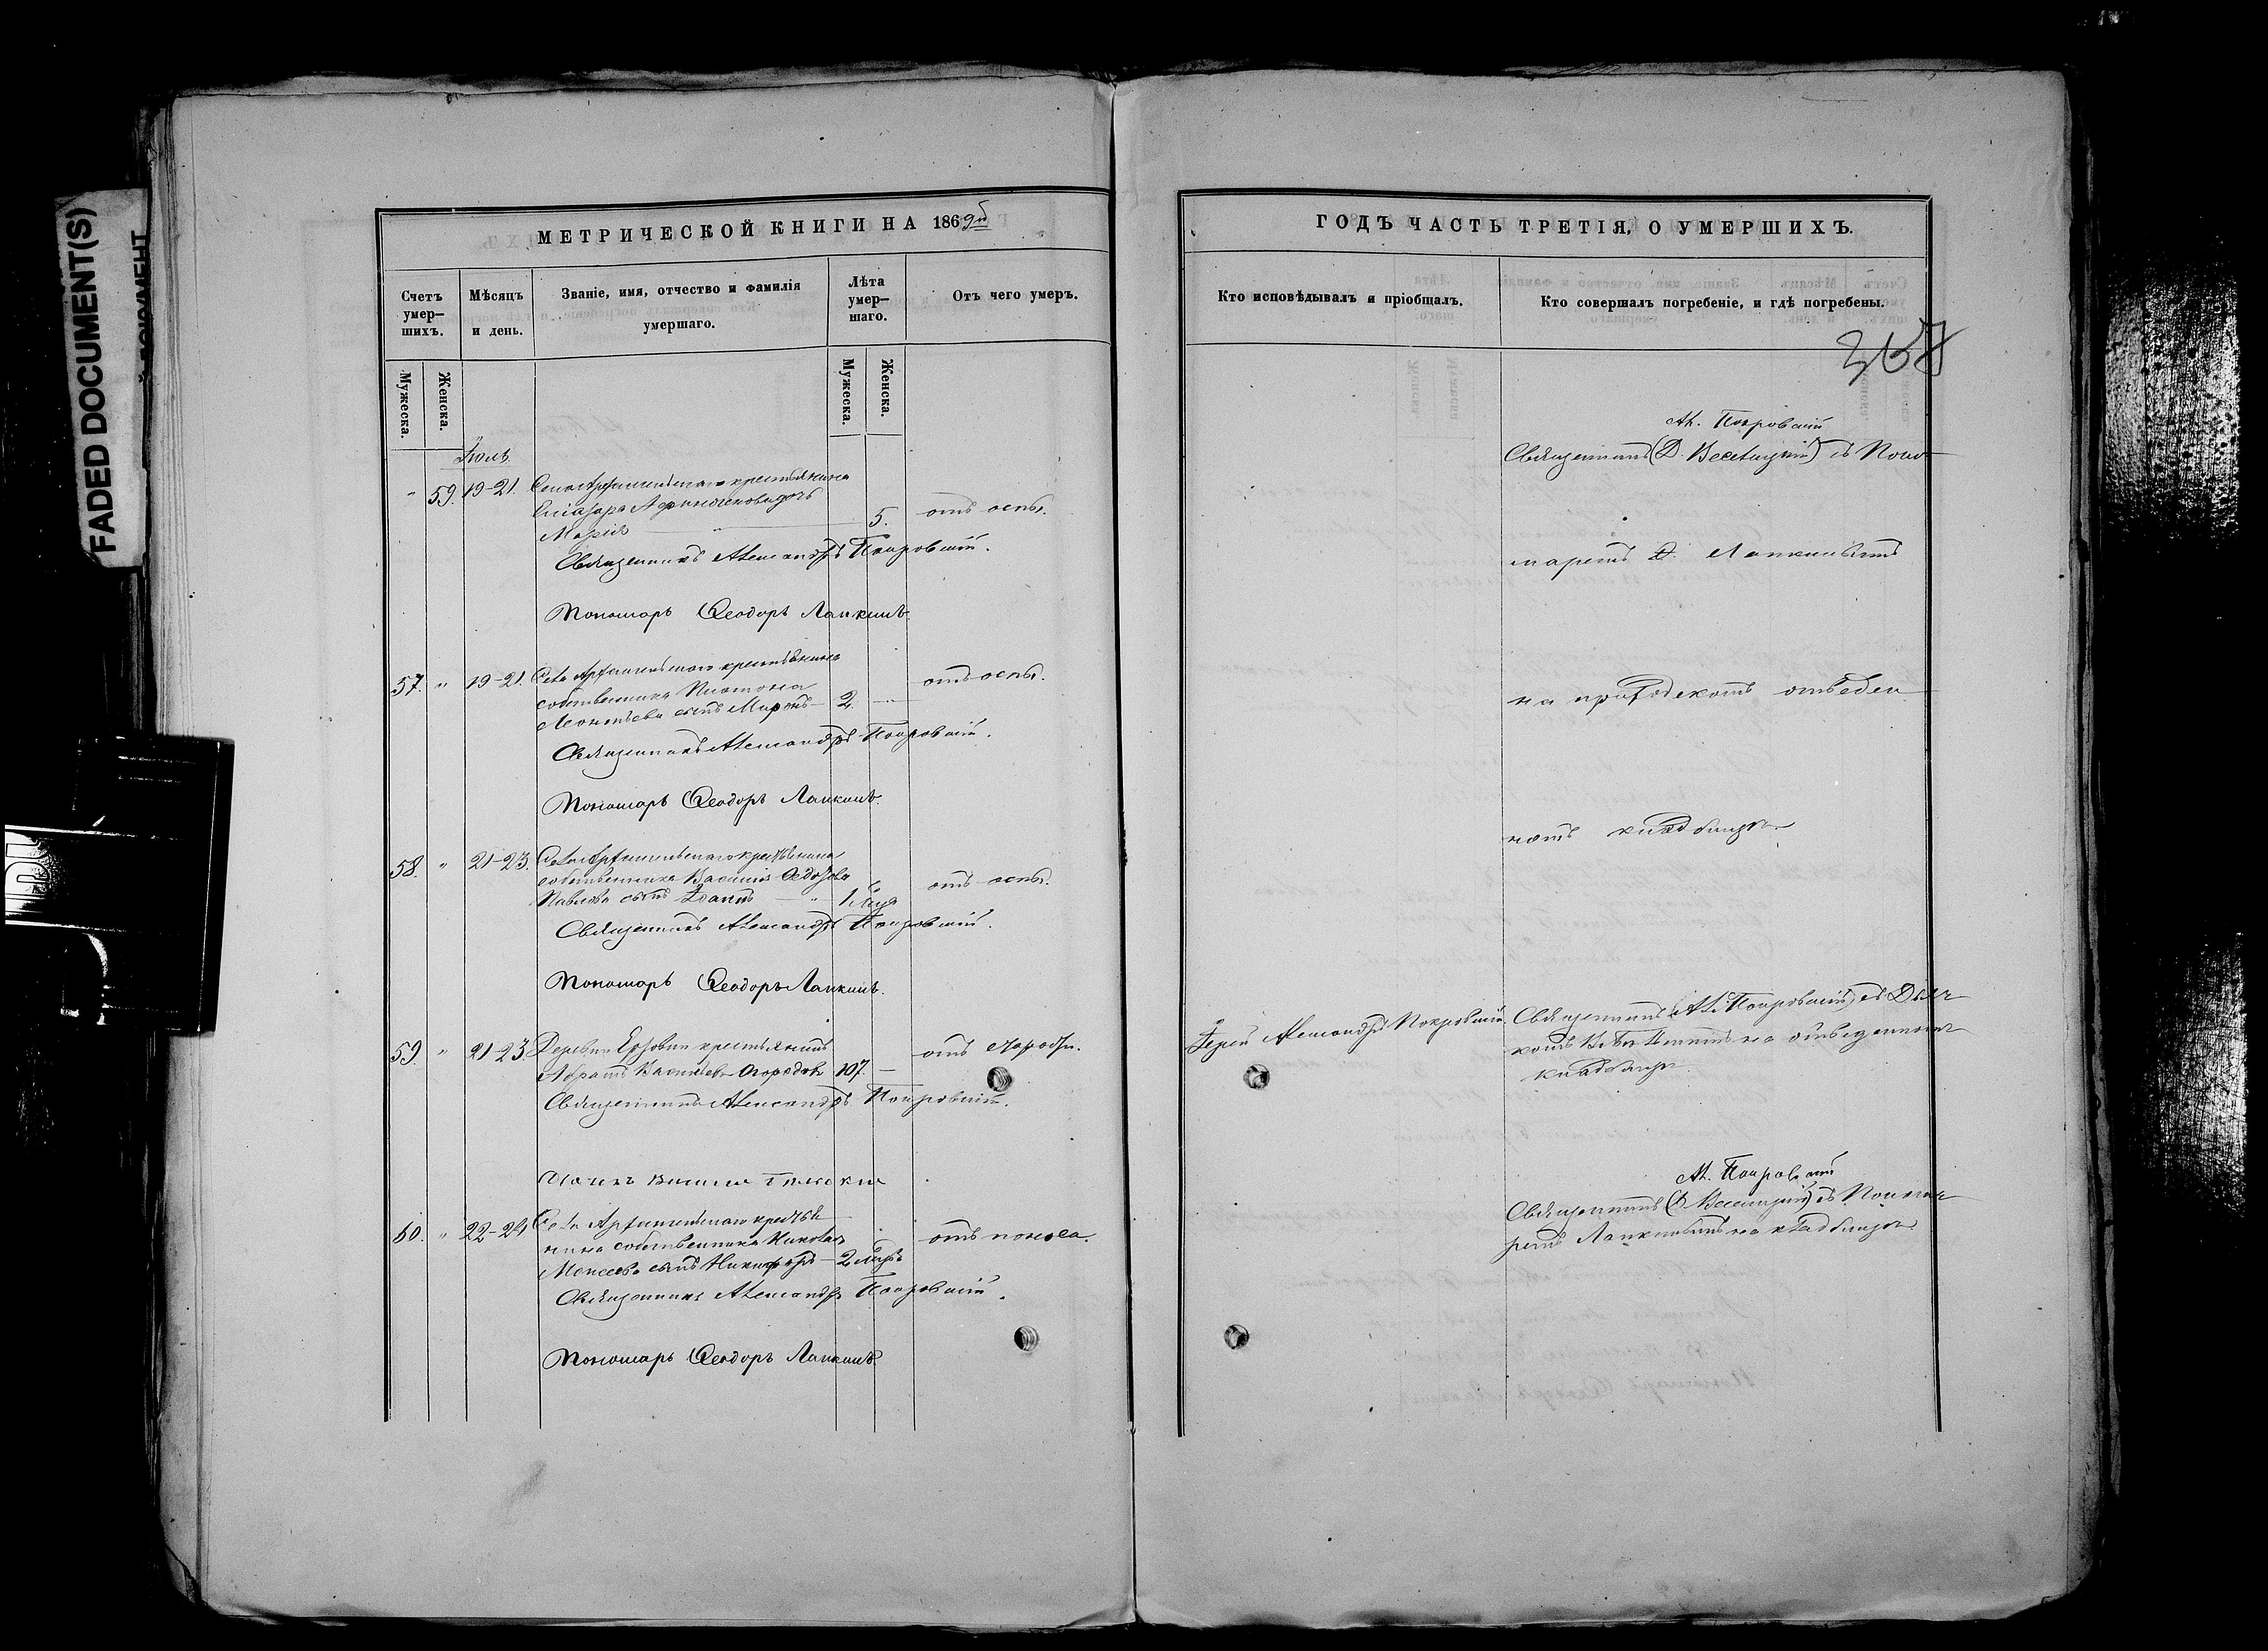 FADED DOCUMENT(S)
МЕТРИЧЕСКОЙ КНИГИ НА 1869й
Счетъ умер-шихъ.
Мѣсяцъ и день.
Званіе, имя, отчество и фамилія умершаго.
Лѣта умер-шаго.
Отъ чего умеръ.
Мужеска.
Женска.
Мужеска.
Женска.
Іюль
" 59. 19-21. Села Архангельскаго крестьянина
дочь
Марія 5. отъ оспы.
Священникъ Александръ Покровскій.
Пономарь Ѳеодоръ Лапкинъ.
57. " 19-21. Села Архангельскаго крестьянина
собственника Платона
Леонтьева сынъ Миронъ 2. отъ оспы.
Священникъ Александръ Покровскій.
Пономарь Ѳеодоръ Лапкинъ.
58. " 21-23. Села Архангельскаго крестьянина
собственника Василія Ѳедорова
Павлова сынъ Іоаннъ 1 отъ оспы.
Священникъ Александръ Покровскій.
Пономарь Ѳеодоръ Лапкинъ.
59. " 21-23 Деревни крестьянинъ
Абрамъ Васильевъ Огородовъ 107. отъ старости.
Священникъ Александръ Покровскій.
60. " 22-24 Села Архангельскаго крестья-
нина собственника Николая
Моисеева сынъ Никифоръ 2 отъ поноса.
Священникъ Александръ Покровскій.
Пономарь Ѳеодоръ Лапкинъ.
ГОДЪ ЧАСТЬ ТРЕТІЯ, О УМЕРШИХЪ.
Кто исповѣдывалъ и пріобщалъ.
Кто совершалъ погребеніе, и гдѣ погребены.
Ал. Покровскій
Священникъ (Д. Веселицкій) съ Поно-
маремъ Ѳ. Лапкинымъ
на приходскомъ отведен
номъ кладбищѣ
Іерей Александръ Покровскій.
Священникъ Ал. Покровскій съ Дьяч-
комъ на отведенномъ
кладбищѣ.
Ал. Покровскій
Священникъ (Д. Веселицкій) съ Понома-
ремъ Лапкинымъ на кладбищѣ